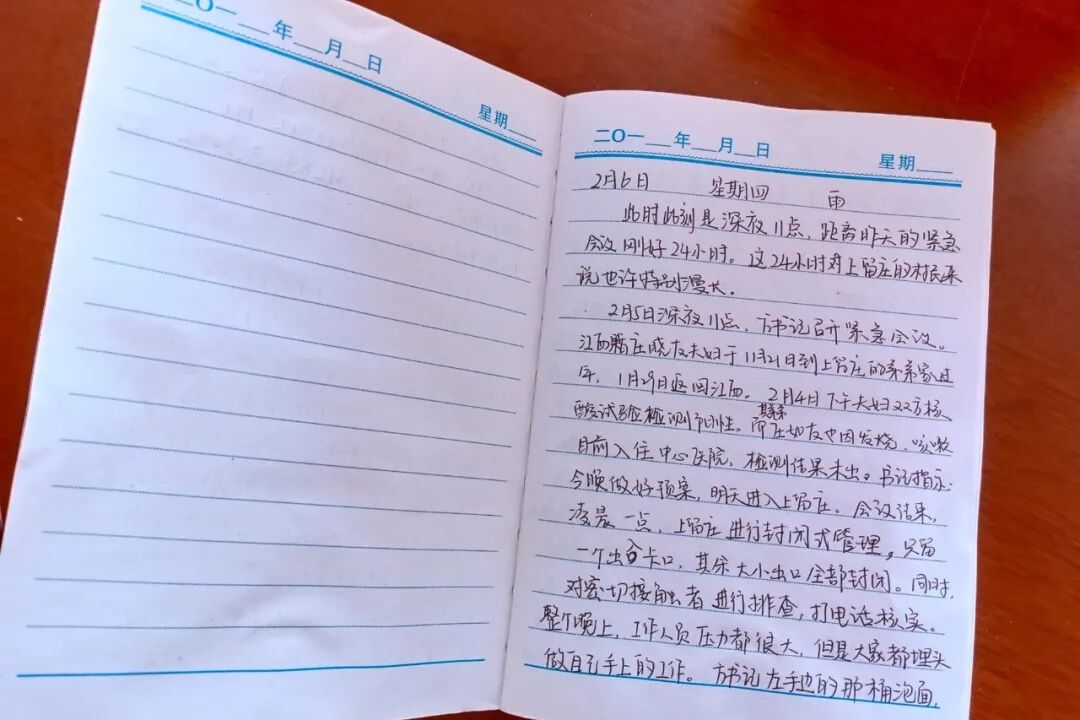 二〇一 年 月 日
星期
二〇一 年 月 日 星期
2月6日 星期四 雨
此时此刻是深夜11点，距离昨天的紧急
会议刚好24小时。这24小时对上留庄的村民来
说也许特别漫长。
2月5日深夜11点，方书记召开紧急会议。
江西籍庄晓友夫妇于11月21日到上留庄的弟弟家过
年，1月29日返回江西。2月4日下午夫妇双方核
酸试验检测阳性。而庄如友也因发烧、咳嗽
目前入住中心医院，检测结果未出。书记指示：
今晚做好预案，明天进入上留庄。会议结果，
凌晨一点，上留庄进行封闭式管理，只留
一个出入卡口，其余大小出口全部封闭。同时，
对密切接触者进行排查，打电话核实。
整个晚上，工作人员压力都很大，但是大家都埋头
做自己手上的工作。方书记左手边的那桶泡面，